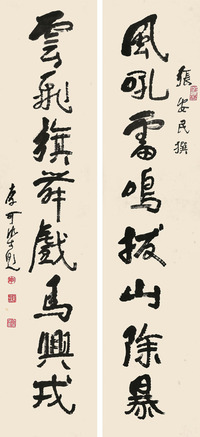 張安民撰
風吼雷鳴拔山除暴
雲飛旗舞戲馬興戎
李可染題